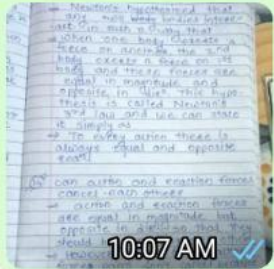 → Newton's hypothesized that
any two body bodies interact
act in such a way that
→ When one body exerts a
force on another the 2nd
body exerts a force on 1st
body and these forces are
equal in magnitude and
opposite in dirn. This hypo-
thesis is called Newton's
3rd law and we can state
it simply as
→ To every action there is
always equal and opposite
can action and reaction forces
cancel each others
→ action and reaction forces
are equal in magnitude but
opposite in direction that they
should
→ However
10:07 AM